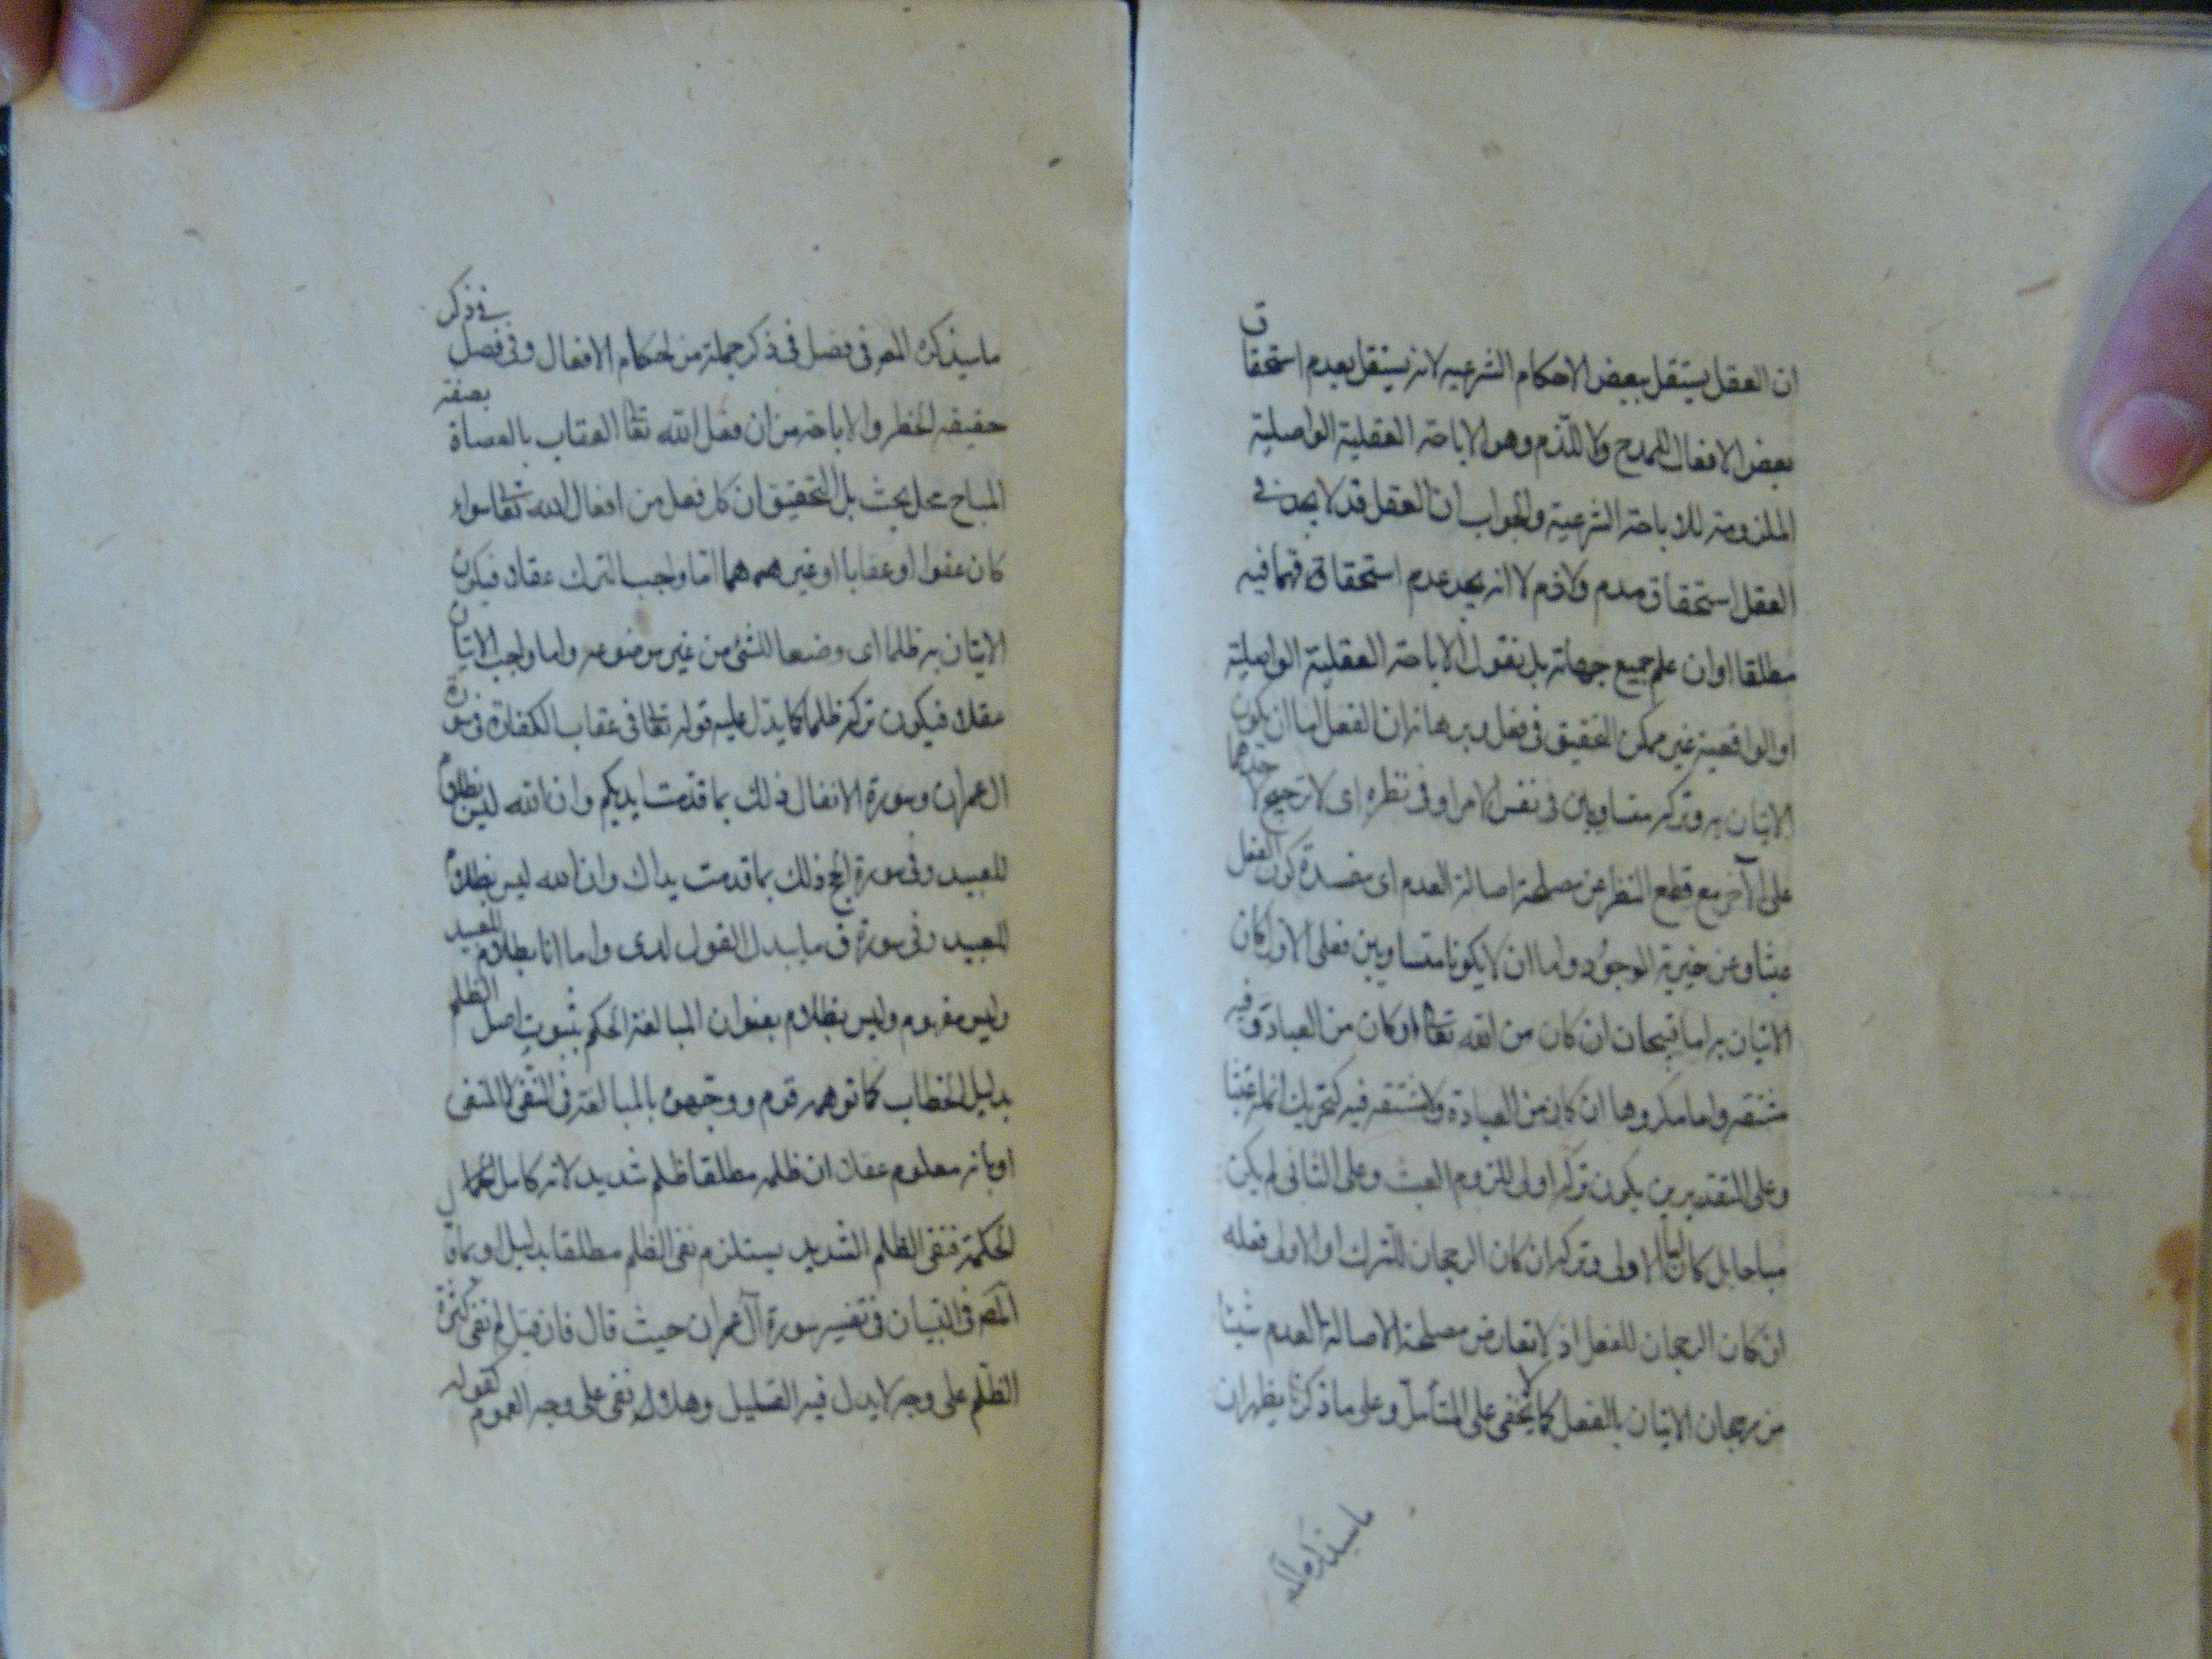 ان العقل يستقل ببعض الاحكام الشرعيه لانه يستقل بعدم استحقاق
بعض الافعال للمدح ولا للذم وهو الاباحة العقلية الواصلية
الملزومة للاباحة الشرعية والجواب ان العقل قد لا يجد في
العقل استحقاق مدح ولا ذم لا انه يجد عدم استحقاق فيه
مطلقا او ان علم جميع جهاته بل نقول الاباحة العقلية الواصلية
او الواقعية غير ممكن التحقيق في فعل وبرهانه ان الفعل اما ان يكون
الاتيان به وتركه متساويين في نفس الامر او في نظره اى لا ترجيح لاحدهما
على الآخر مع قطع النظر عن مصلحة اصالة العدم اى مفسدة كون الفعل
عبثا وعن خيرية الوجود واما ان لا يكونا متساويين فعلى الاول كان
الاتيان به اما قبيحا ان كان من الله تعالى او كان من العباد وفيه
مشقه واما مكروها ان كان من العباد ولا مشقه فيه كتحريك انملة عبثا
وعلى التقديرين يكون تركه اولى للزوم العبث وعلى الثانى لم يكن
مباحا بل كان الاولى وتركه ان كان الرجحان للترك او الاولى فعله
ان كان الرجحان للفعل اذ لا تعارض مصلحة الاصالة العدم شيئا
من رجحان الاتيان بالفعل كما لا يخفى على المتأمل وعلى ما ذكرنا يظهر ان
ما سيذكره المص
ما سيذكره المص فى فصل فى ذكر جملة من احكام الافعال وفى فصل فى ذكر
حقيقة الحظر والاباحة من ان فعل الله تعالى العقاب بالعصاة بصفة
المباح محل بحث بل التحقيق ان كل فعل من افعال الله تعالى سواء
كان عفوا او عقابا او غيرهما اما واجب الترك عقلا فيكون
الاتيان به ظلما اى وضعا للشئ من غير موضوعه واما واجب الاتيان
عقلا فيكون تركه ظلما كما يدل عليه قوله تعالى فى عقاب الكفار فى سورة
آل عمران وسورة الانفال ذلك بما قدمت ايديكم وان الله ليس بظلام
للعبيد وفى سورة الحج ذلك بما قدمت يداك وان الله ليس بظلام
للعبيد وفى سورة ق ما يبدل القول لدى وما انا بظلام للعبيد
وليس مفهوم وليس بظلام بعنوان المبالغة الحكم بثبوت اصل الظلم
بدليل الخطاب كما توهمه قوم ووجهوه بالمبالغة فى النفى لا المنفى
او بانه معلوم عقلا ان ظلمه مطلقا ظلم شديد لانه كامل
الحكمة فنفى الظلم الشديد يستلزم نفى الظلم مطلقا بدليل او بما قال
المص فى التبيان فى تفسير سورة آل عمران حيث قال فان قيل لم نفى كثرة
الظلم على وجه لا يدل فيه القليل وهلا نفى على وجه العموم كقوله